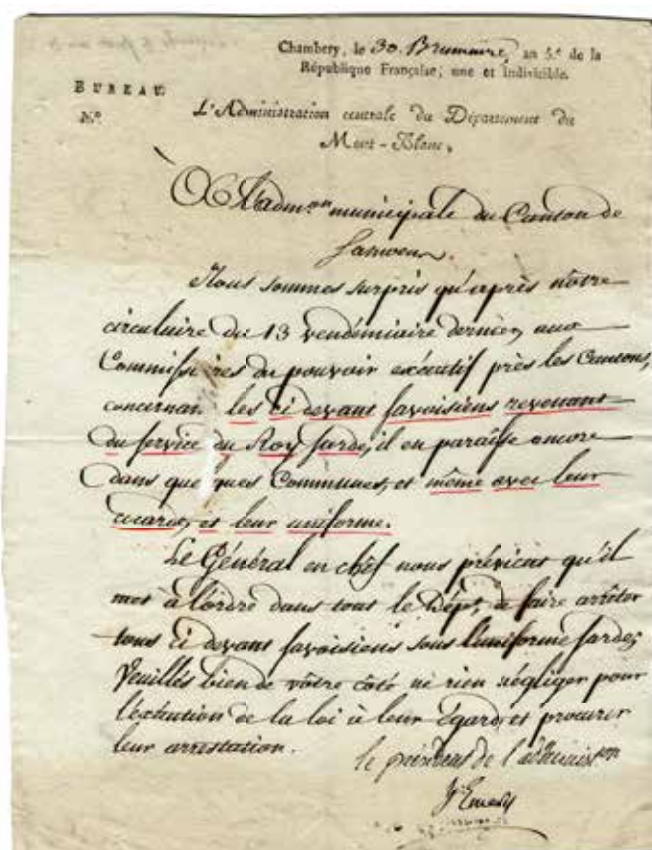 Chambery, le 30. Brumaire, an 5.e de la
République Française, une et indivisible.
BUREAU
N.o
L'Administration centrale du Département du
Mont-Blanc,
À L'adm.on municipale du Canton de
Nous sommes surpris qu'après nôtre
circulaire du 13 vendémiaire dernier, aux
Commissaires du pouvoir exécutif près les Cantons,
concernan les ci devant savoisiens revenant
du service du Roy sarde, il en paraisse encore
dans quelques Communes, et même avec leur
cocarde, et leur uniforme.
Le Général en chef nous prévient qu'il
met à l'ordre dans tout le Dépt, de faire arrêter
tous ci devant savoisiens sous l'uniforme sarde;
Veuillés bien de vôtre côté ne rien négliger pour
l'exécution de la loi à leur égard, et procurer
leur arrestation.
le président de l'administon